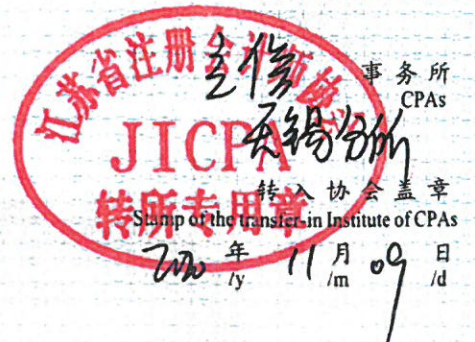 江苏省注册会计师协会
JICPA
转所专用章
立信 事务所
CPAs
无锡分所
转入协会盖章
Stamp of the transfer-in Institute of CPAs
2020 年 11 月 09 日
/y /m /d